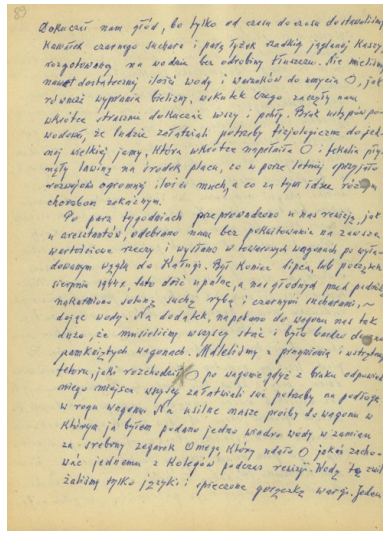 89
Dokuczał nam głód, bo tylko od czasu do czasu dostawaliśmy
kawałek czarnego suchara i parę łyżek rzadkiej jaglanej kaszy,
rozgotowanej na wodzie bez odrobiny tłuszczu. Nie mieliśmy
nawet dostatecznej ilości wody i warunków do umycia O, jak
również wyprania bielizny, wskutek czego zaczęły nam
wkrótce strasznie dokuczać wszy i pchły. Brak ustępów po-
wodował, że ludzie załatwiali potrzeby fizjologiczne do jed-
nej wielkiej jamy, która wkrótce napełniła O i fekalia pły-
nęły lawiną na środek placu, co w porze letniej sprzyjało
rozwojowi ogromnej ilości much, a co za tym idzie różnym
chorobom zakaźnym.
Po paru tygodniach przeprowadzono u nas rewizję, jak
u aresztantów, odebrano nam bez pokwitowania na zawsze
wartościowe rzeczy i wysłano w towarowych wagonach po wyła-
dowanym węglu do Kaługi. Był koniec lipca, lub początek
sierpnia 1944 r. lato dość upalne, a nas głodnych przed podróżą
nakarmiono słoną suchą rybą i czarnymi sucharami, ~
dając wody. Na dodatek, napchano do wagonu nas tak
dużo, że musieliśmy wszyscy stać i było bardzo duszno
zamkniętych wagonach. Mdleliśmy z pragnienia i wstrętnego
fetoru, jaki rozchodził po wagonie gdyż z braku odpowied-
niego miejsca wszyscy załatwiali swe potrzeby na podłogę
w rogu wagonu. Na usilne nasze prośby do wagonu w
którym ja byłem podano jedno wiadro wody w zamian
za srebrny zegarek Omega, który udało O jakoś zacho-
wać jednemu z kolegów podczas rewizji. Wodą tą zwil-
żaliśmy tylko języki i spieczone gorączką wargi. Jeden